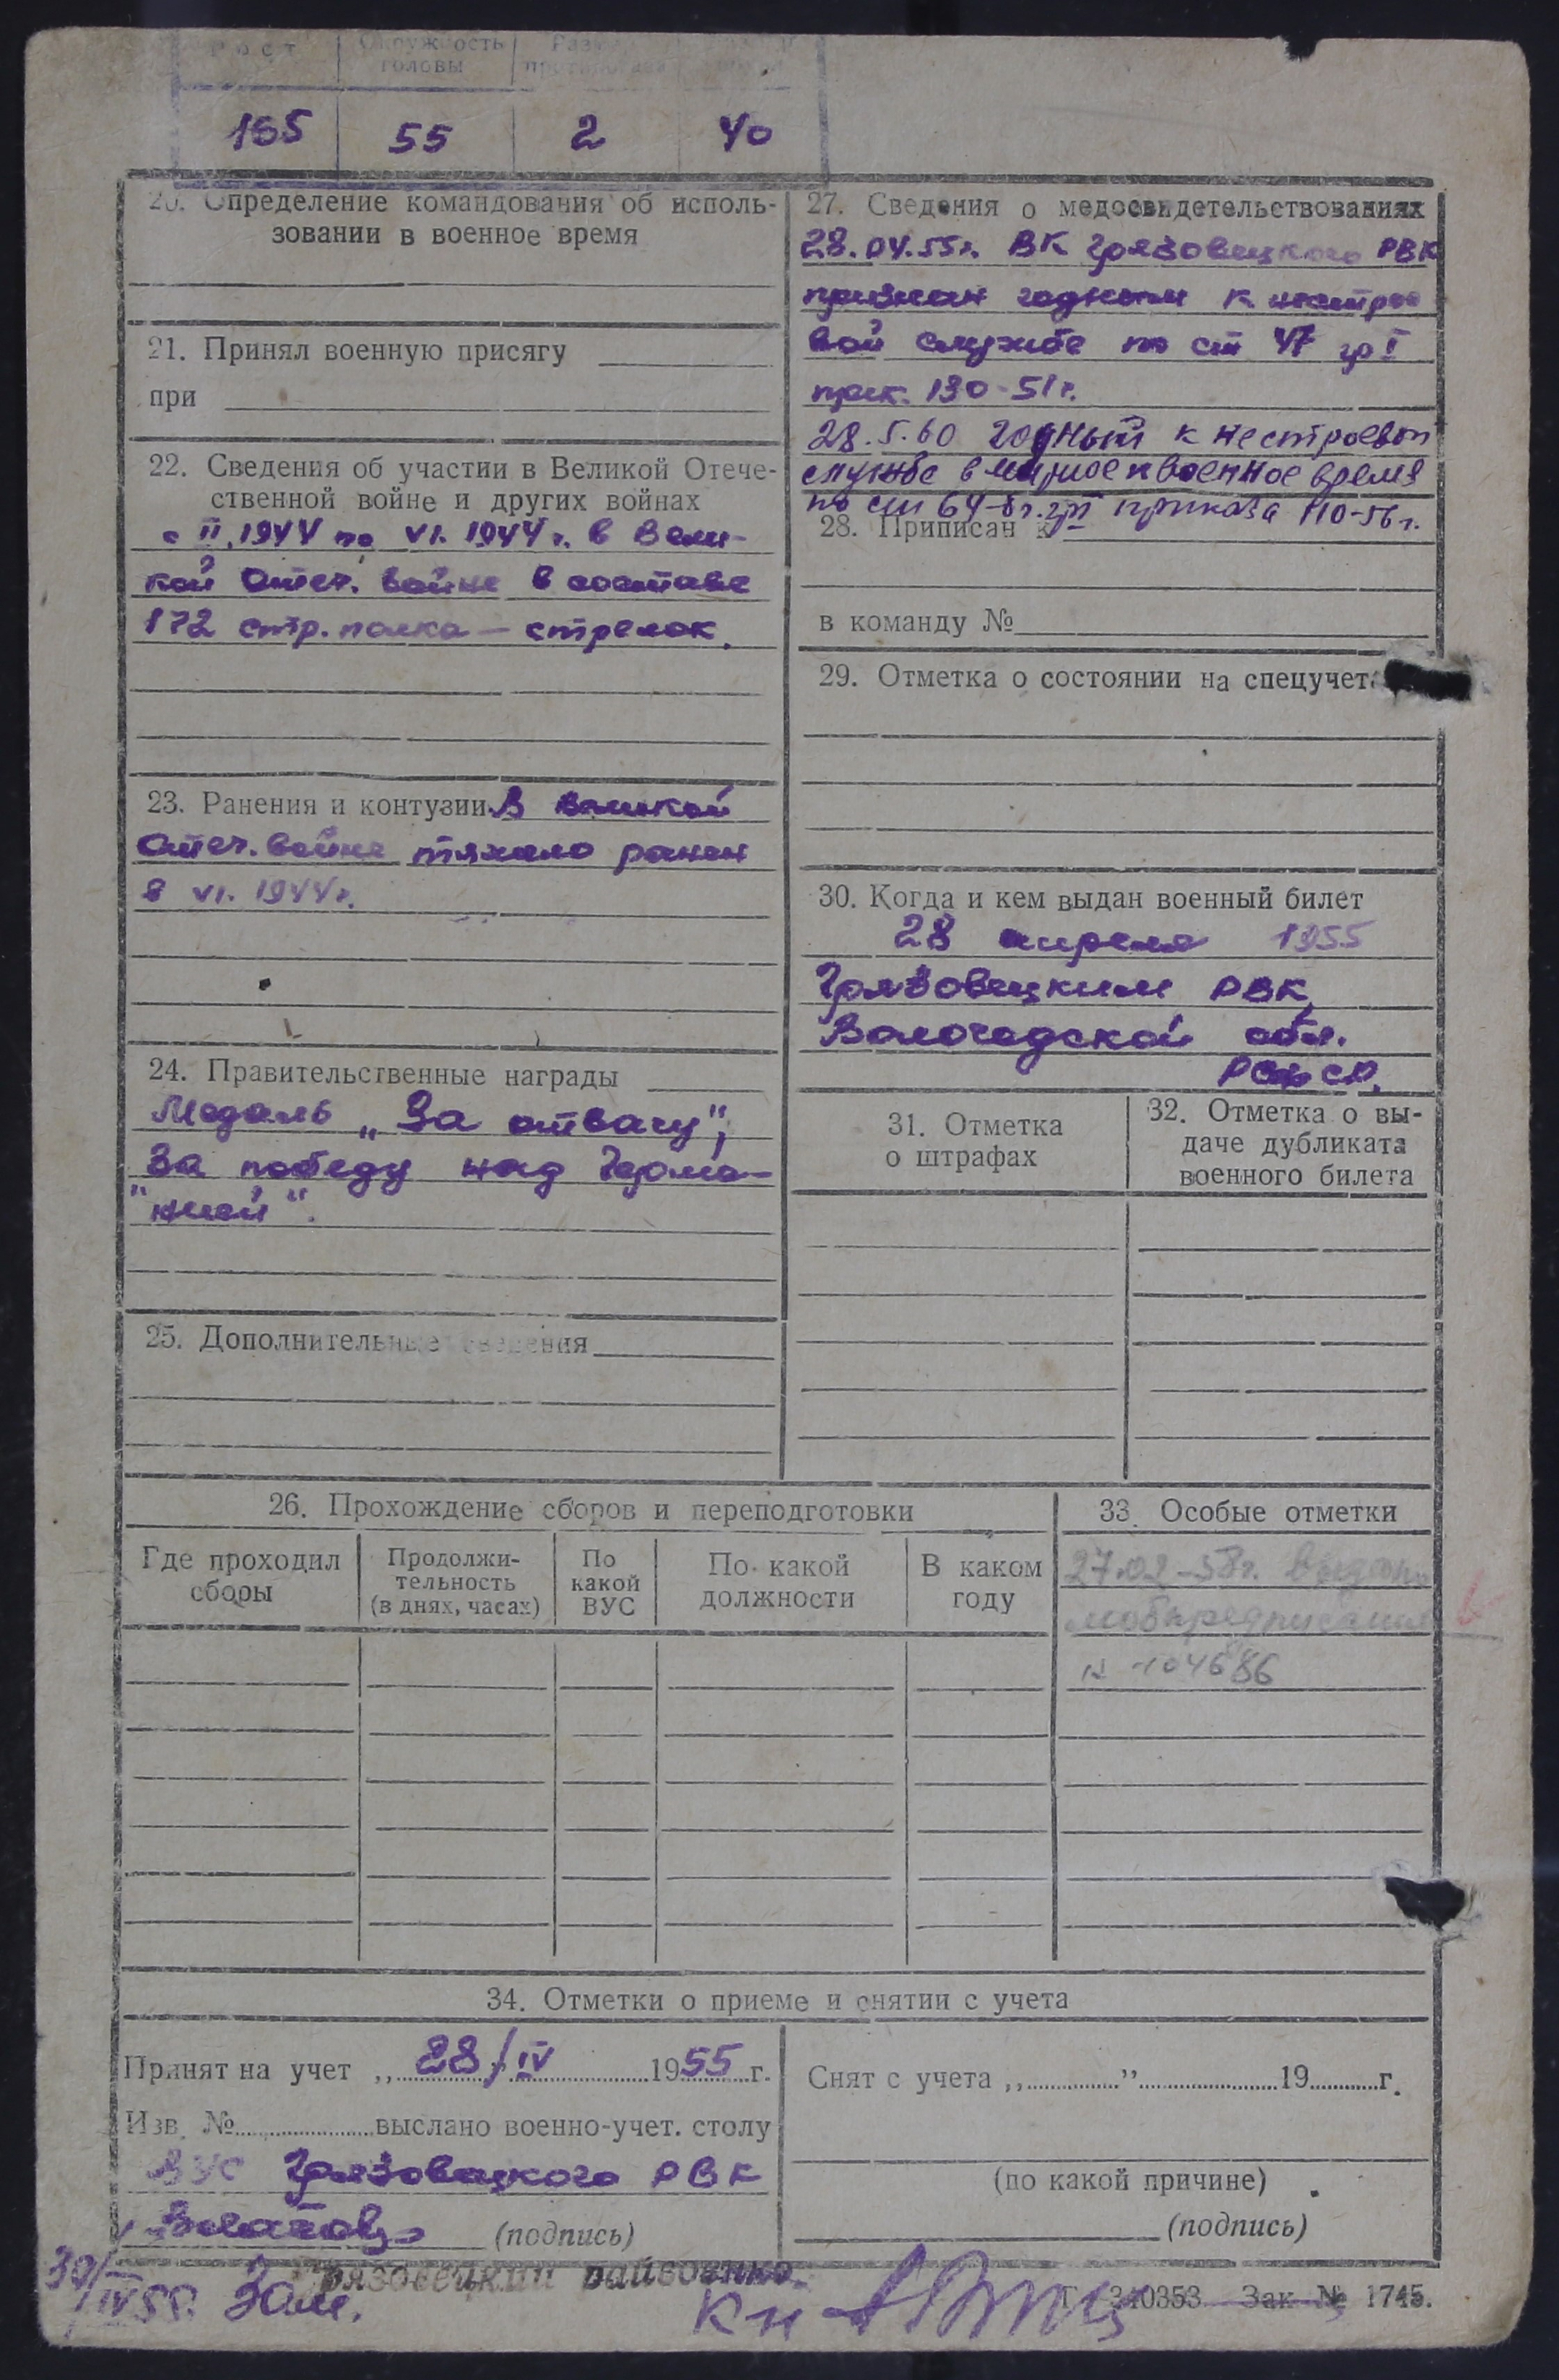 Рост Окружность головы
165 55 2 40
20. Определение командования об исполь-
зовании в военное время
21. Принял военную присягу
при
22. Сведения об участии в Великой Отече-
ственной войне и других войнах
с II.1944 по VI.1944 г. в Вели-
кой Отеч. войне в составе
172 стр. полка — стрелок.
23. Ранения и контузии В Великой
Отеч. войне тяжело ранен
8 VI. 1944 г.
24. Правительственные награды
Медаль „За отвагу",
За победу над Герма-
"нией".
25. Дополнительные сведения
27. Сведения о медосвидетельствованиях
28.04.55 г. ВК Грязовецкого РВК
признан годным к нестрое
вой службе по ст 47 гр I
прик. 130-51 г.
28.5.60 годный к нестроевой
службе в мирное и военное время
по ст 64-б г. гр II приказа 110-56 г.
28. Приписан к
в команду №
29. Отметка о состоянии на спецучете
30. Когда и кем выдан военный билет
28 апреля 1955
Грязовецким РВК
Вологодской обл.
РСФСР.
31. Отметка
о штрафах
32. Отметка о вы-
даче дубликата
военного билета
26. Прохождение сборов и переподготовки
Где проходил
сборы
Продолжи-
тельность
(в днях, часах)
По
какой
ВУС
По какой
должности
В каком
году
33. Особые отметки
27.02-58 г. выдано
мобпредписание
№ 104686
34. Отметки о приеме и снятии с учета
Принят на учет „28/IV 1955 г.
Изв. № выслано военно-учет. столу
ВУС Грязовецкого РВК
(подпись)
Снят с учета „ " 19 г.
(по какой причине)
(подпись)
Грязовецкий райвоенко
30/IV 55. Зам.
Г-340353 Зак. № 1745.